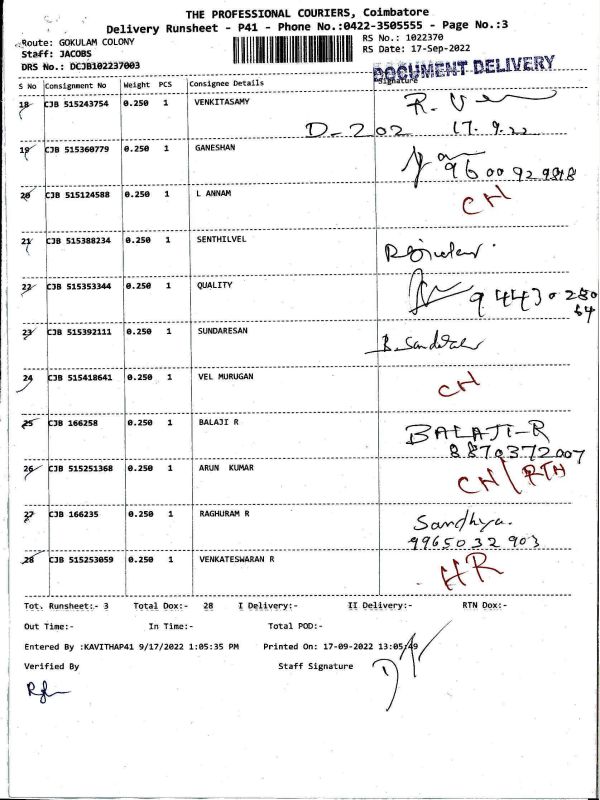 THE PROFESSIONAL COURIERS, Coimbatore
Delivery Runsheet - P41 - Phone No.:0422-3505555 - Page No.:3
Route: GOKULAM COLONY
RS No.: 1022370
Staff: JACOBS
RS Date: 17-Sep-2022
DRS No.: DCJB102237003
DOCUMENT DELIVERY
S No Consignment No Weight PCS Consignee Details Signature
18 CJB 515243754 0.250 1 VENKITASAMY
D-202 17.9.22
19 CJB 515360779 0.250 1 GANESHAN
20 CJB 515124588 0.250 1 L ANNAM CH
21 CJB 515388234 0.250 1 SENTHILVEL
22 CJB 515353344 0.250 1 QUALITY
23 CJB 515392111 0.250 1 SUNDARESAN
24 CJB 515418641 0.250 1 VEL MURUGAN CH
25 CJB 166258 0.250 1 BALAJI R BALAJI-R
8870372007
26 CJB 515251368 0.250 1 ARUN KUMAR CH/RTH
27 CJB 166235 0.250 1 RAGHURAM R Sandhya.
9965032903
28 CJB 515253059 0.250 1 VENKATESWARAN R HR
Tot. Runsheet:- 3 Total Dox:- 28 I Delivery:- II Delivery:- RTN Dox:-
Out Time:- In Time:- Total POD:-
Entered By :KAVITHAP41 9/17/2022 1:05:35 PM Printed On: 17-09-2022 13:05:49
Verified By Staff Signature